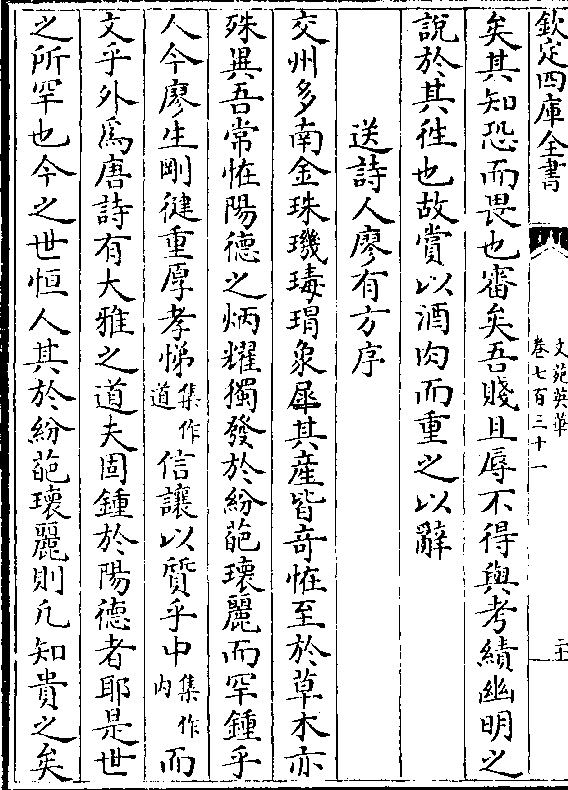 欽定四庫全書
文苑英華
卷七百三十一
矣其知恐而畏也審矣吾賤且辱不得與考績幽明之
說於其徃也故賞以酒肉而重之以辭
送詩人廖有方序
交州多南金珠璣瑇瑁象犀其產皆竒恠至於草木亦
殊異吾常恠陽德之炳耀獨發於紛葩瓌麗而罕鍾乎
人今廖生剛健重厚孝悌集作道信讓以質乎中集作内而
文乎外爲唐詩有大雅之道夫固鍾於陽德者耶是世
之所罕也今之世恒人其於紛葩瓌麗則凡知貴之矣